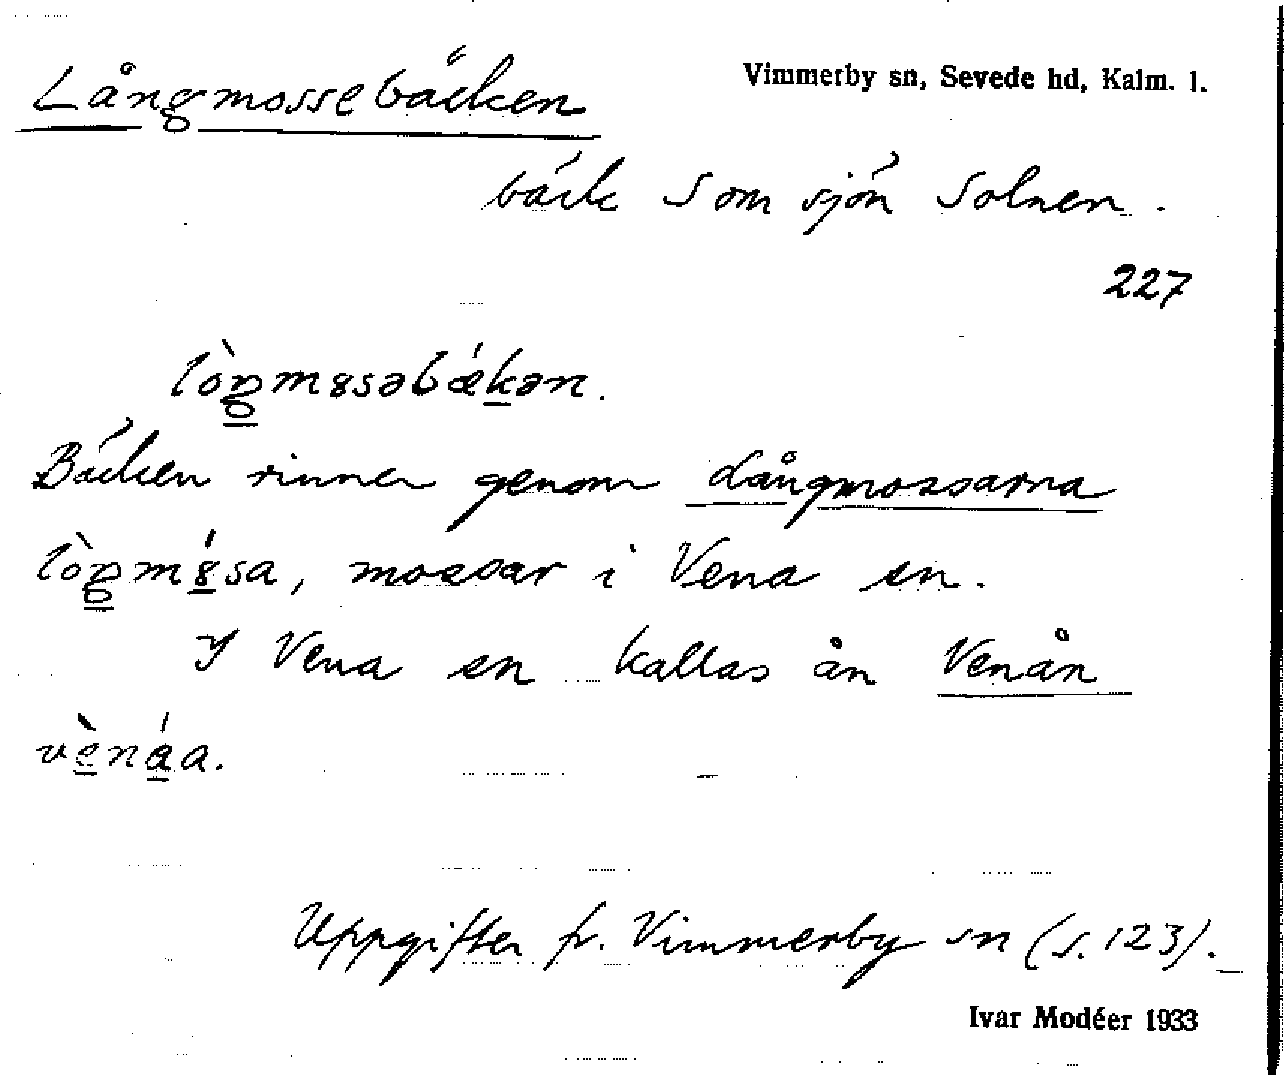 Långmossebäcken
Vimmerby sn, Sevede hd, Kalm. l.
bäck S om sjön Solnen.
227
lòŋmɞsəbǽkən.
Bäcken rinner genom Långmossarna
lòŋmɞ́sa, mossar i Vena sn.
I Vena sn kallas ån Venån
vènáa.
Uppgifter fr. Vimmerby sn (s. 123).
Ivar Modéer 1933